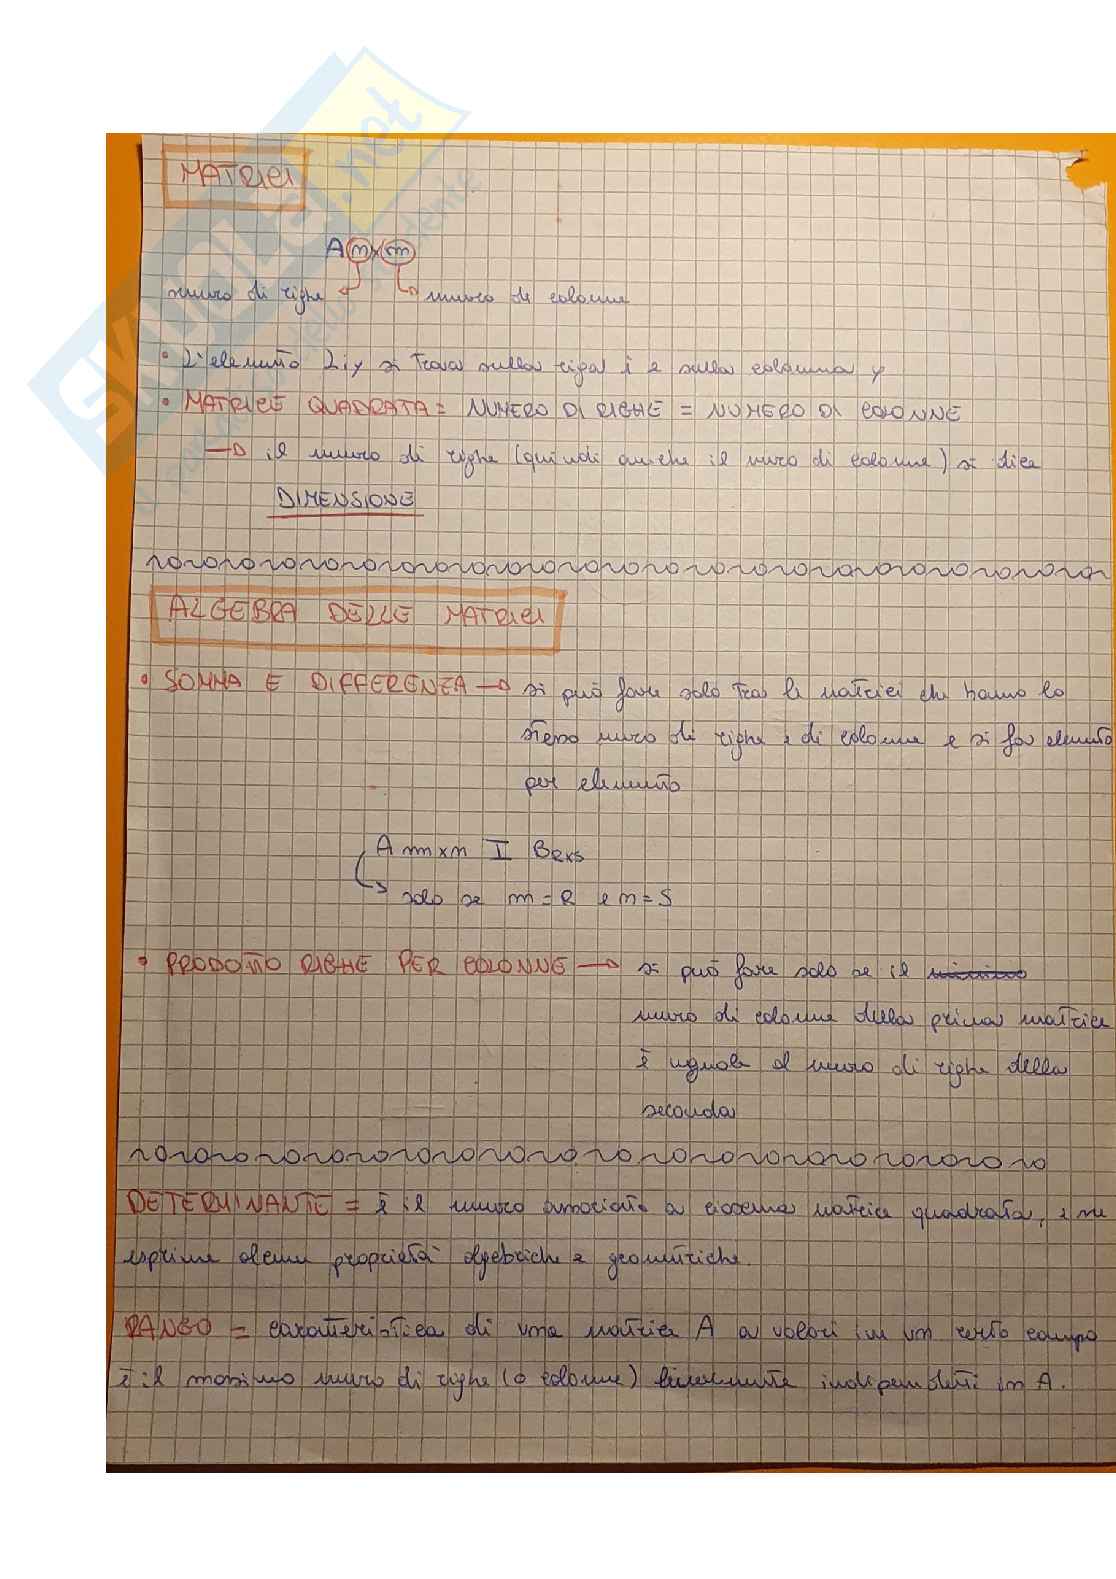 MATRICI
A m x n
numero di righe numero di colonne
• L'elemento 2iy si trova sulla riga i e sulla colonna y
• MATRICE QUADRATA = NUMERO DI RIGHE = NUMERO DI COLONNE
→ il numero di righe (quindi anche il numero di colonne) si dice
DIMENSIONE
ALGEBRA DELLE MATRICI
• SOMMA E DIFFERENZA → si può fare solo tra le matrici che hanno lo
stesso numero di righe e di colonne e si fa elemento
per elemento
A m x n I B R x S
solo se m = R e n = S
• PRODOTTO RIGHE PER COLONNE → si può fare solo se il
numero di colonne della prima matrice
è uguale al numero di righe della
seconda
DETERMINANTE = è il numero associato a ciascuna matrice quadrata, e ne
esprime alcune proprietà algebriche e geometriche.
RANGO = caratteristica di una matrice A a valori in un certo campo
è il massimo numero di righe (o colonne) linearmente indipendenti in A.
SKUOLA.net